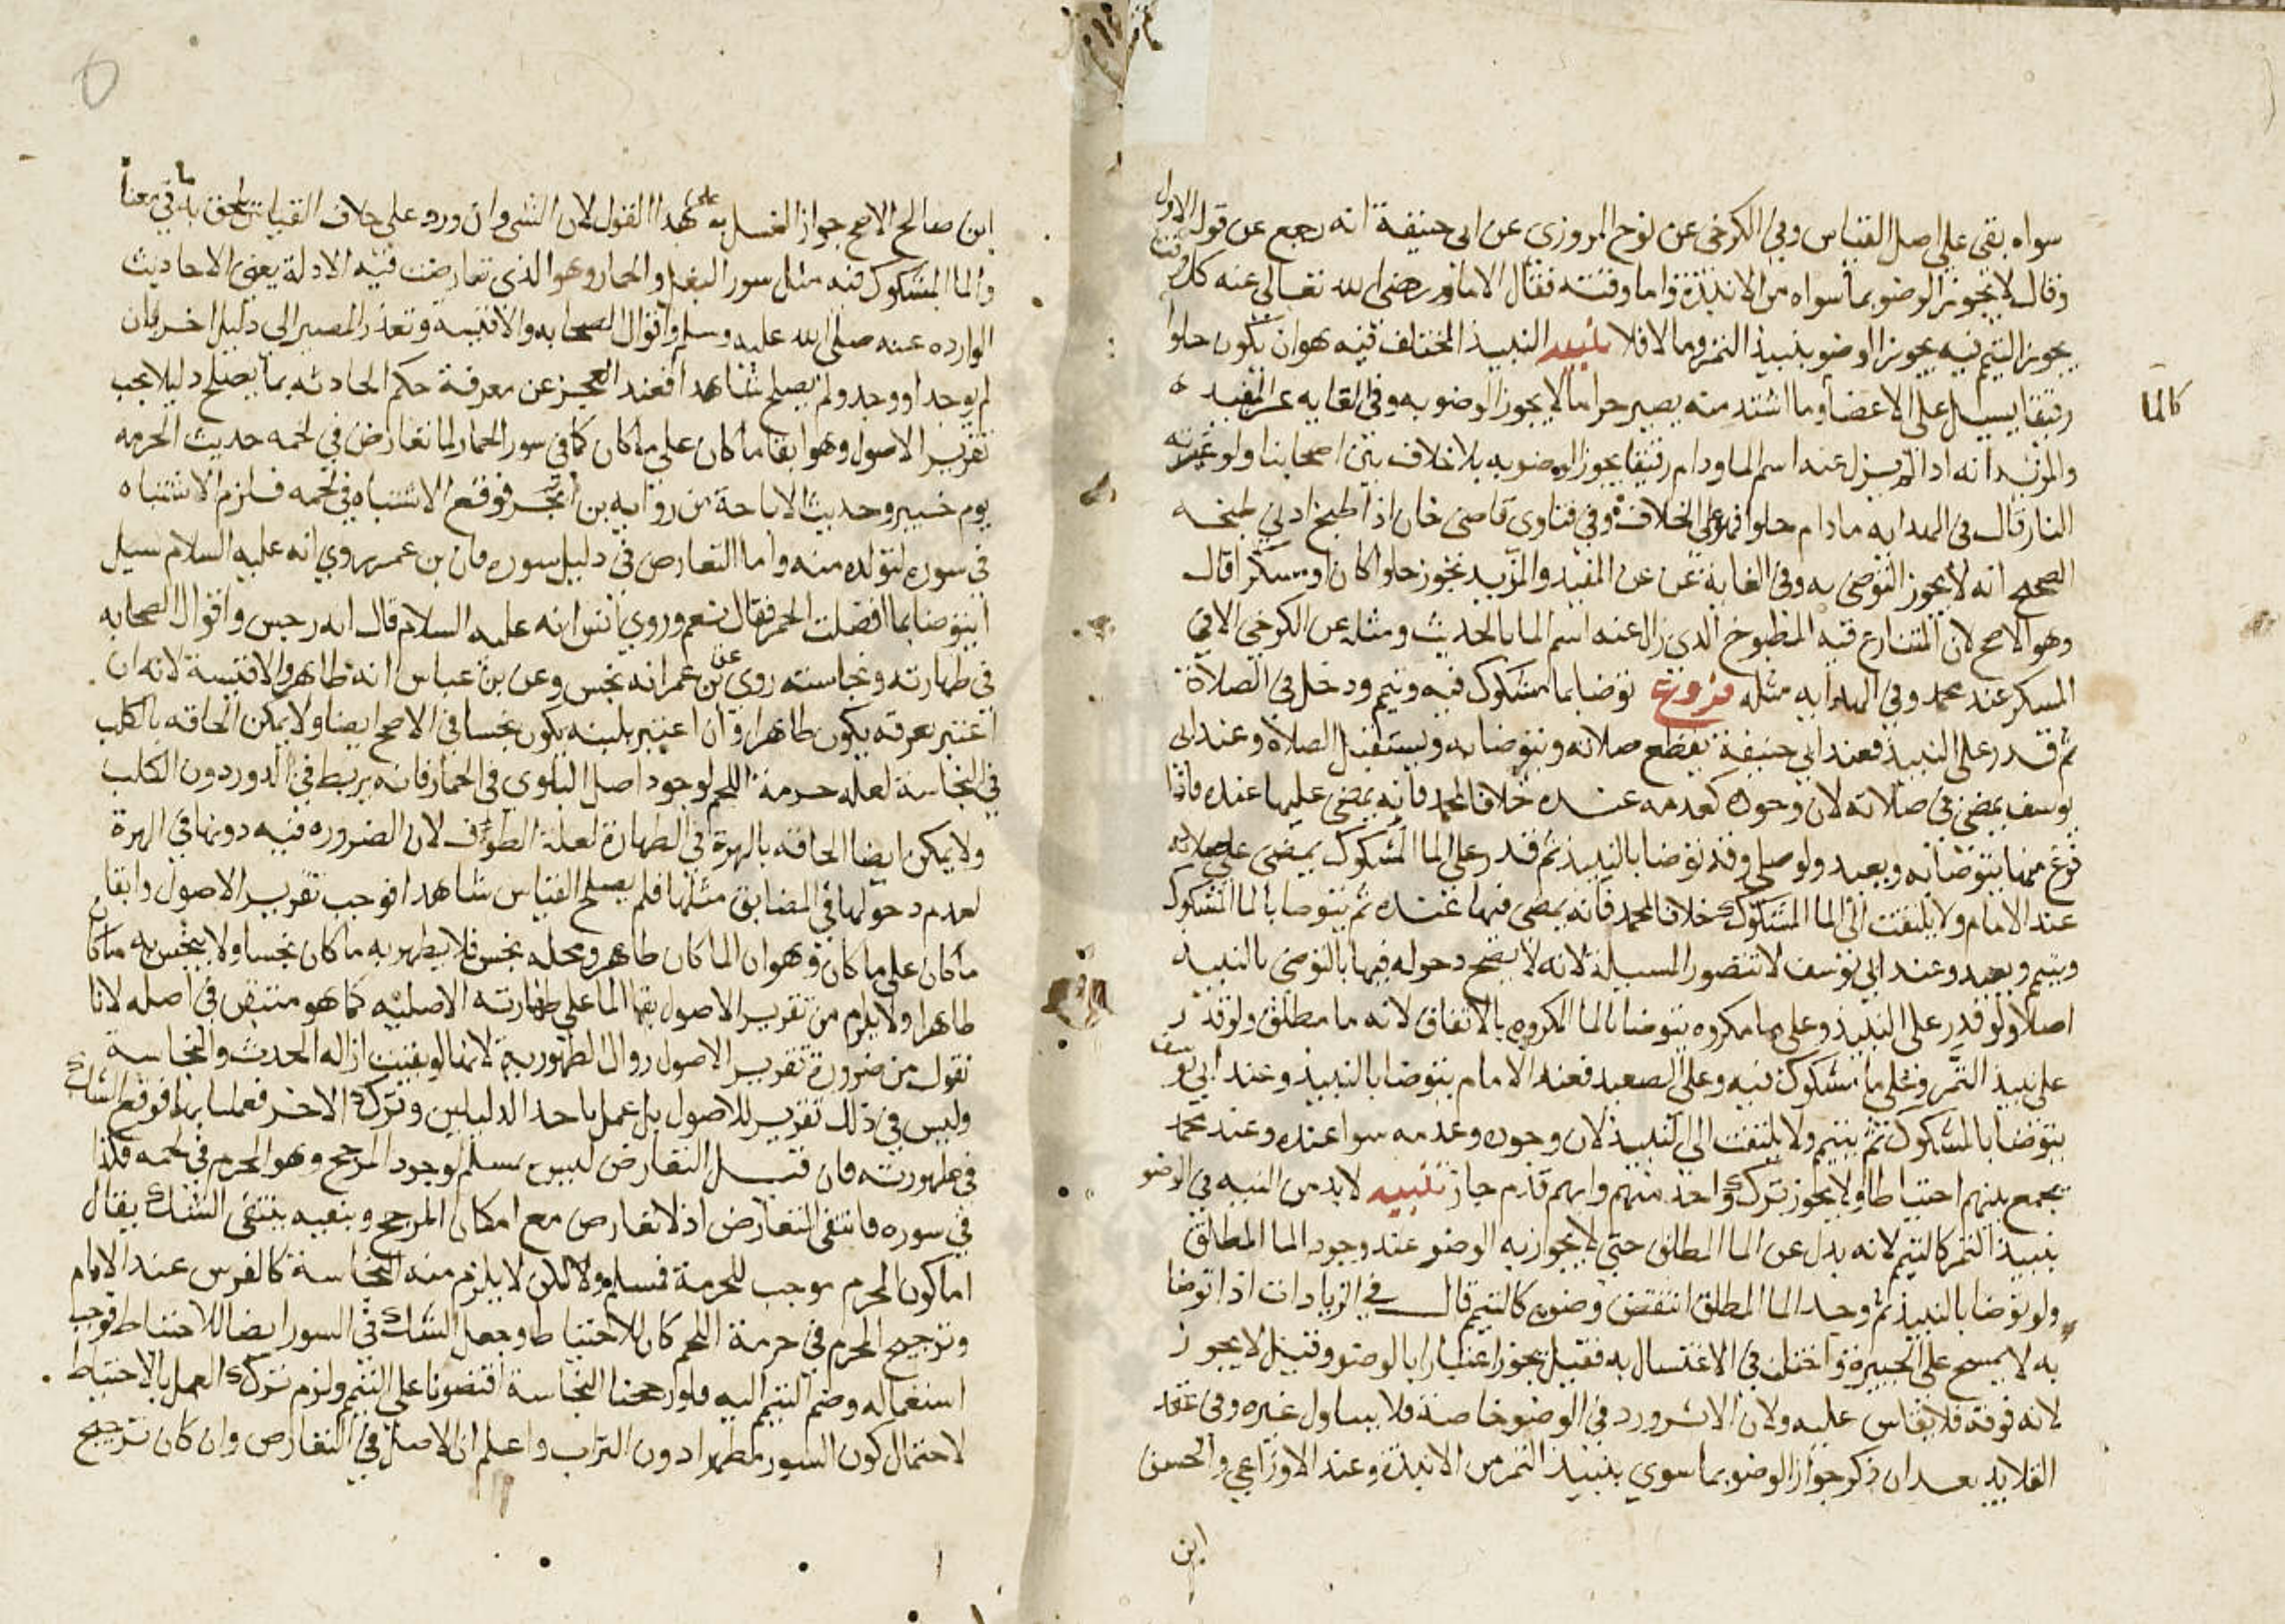 سواه بقى على اصل القياس وفي الكرخى عن نوح المروزى عن ابى حنيفة انه رجع عن قوله الاول
وقال لا يجوز الوضو بما سواه من الانبذة واما وقته فقال الامام رضى الله تعالى عنه كل وقت
يجوز التيمم فيه يجوز الوضو بنبيذ التمر وما لا فلا تنبيه النبيذ المختلف فيه هو ان يكون حلوا
رقيقا يسيل على الاعضا وما اشتد منه يصير حراما لا يجوز الوضو به وفى الغايه عن المفيد
كالما
والمزيد انه اذا لم يزل عنه اسم الما ودام رقيقا يجوز الوضو به بلا خلاف بين اصحابنا ولو غيرته
النار قال فى الهدايه ما دام حلوا فهو على الخلاف وفي فتاوى قاضى خان اذا طبخ ادنى طبخه
الصحيح انه لا يجوز التوضى به وفى الغاية عن المفيد والمزيد يجوز حلوا كان او مسكرا قال
وهو الاصح لان المتنازع فيه المطبوخ الذى زال عنه اسم الما بالحديث ومثله عن الكرخى الا فى
المسكر عند محمد وفي الهدايه مثله فروع توضا بما مشكوك فيه وتيمم ودخل فى الصلاة
ثم قدر على النبيذ فعند ابي حنيفة يقطع صلاته ويتوضا به ويستقبل الصلاة وعند ابى
يوسف يمضى في صلاته لان وجوده كعدمه عنده خلافا لمحمد فانه يمضى عليها عنده فاذا
فرغ منها يتوضا به ويعيد ولو صلى وقد توضا بالنبيذ ثم قدر على الما المشكوك يمضى على صلاته
عند الامام ولا يلتفت الى الما المشكوك خلافا لمحمد فانه يمضى فيها عنده ثم يتوضا بالما المشكوك
ويتيمم ويعيد وعند ابي يوسف لا تتصور المسيلة لانه لا يصح دخوله فيها بالتوضى بالنبيذ
اصلا ولو قدر على النبيذ وعلى ما مكروه يتوضا بالما المكروه بالاتفاق لانه ما مطلق ولو قدر
على نبيذ التمر وعلى ما مشكوك فيه وعلى الصعيد فعند الامام يتوضا بالنبيذ وعند ابي يوسف
يتوضا بالمشكوك ثم يتيمم ولا يلتفت الى النبيذ لان وجوده وعدمه سوا عنده وعند محمد
يجمع بينهم احتياطا ولا يجوز ترك واحد منهم وايهم قدم جاز تنبيه لا بد من النيه في الوضو
بنبيذ التمر كالتيمم لانه بدل عن الما المطلق حتى لا يجوز به الوضو عند وجود الما المطلق
ولو توضا بالنبيذ ثم وجد الما المطلق انتقض وضوه كالتيمم قال في الزيادات اذا توضا
به لا يمسح على الجبيرة واختلف فى الاغتسال به فقيل يجوز اعتبارا بالوضو وقيل لا يجوز
لانه فوقه فلا يقاس عليه ولان الاثر ورد في الوضو خاصة فلا يتناول غيره وفى عقد
القلايد بعد ان ذكر جواز الوضو بما سوي بنبيذ التمر من الانبذة وعند الاوزاعى والحسن
ابن
ابن صالح الاصح جواز الغسل به على هذا القول لان الشى وان ورد على خلاف القياس يلحق به ما في معناه
والما المشكوك فيه مثل سور البغل والحمار وهو الذى تعارضت فيه الادلة يعنى الاحاديث
الوارده عنه صلى الله عليه وسلم واقوال الصحابه والاقيسة وتعذر المصير الى دليل اخر بان
لم يوجد او وجد ولم يصلح شاهدا فعند العجز عن معرفة حكم الحادثه بما يصلح دليلا يجب
تقرير الاصول وهو ابقا ما كان على ما كان كما في سور الحمار لما تعارض في لحمه حديث الحرمه
يوم خيبر وحديث الاباحة من روايه بن ابجر فوقع الاشتباه في لحمه فلزم الاشتباه
في سوره لتولده منه واما التعارض فى دليل سوره فان بن عمر روي انه عليه السلام سيل
ايتوضا بما افضلت الحمر فقال نعم وروي انس انه عليه السلام قال انه رجس واقوال الصحابه
في طهارته ونجاسته روي عن بن عمر انه نجس وعن بن عباس انه طاهر والاقيسة لانه ان
اعتبر بعرقه يكون طاهرا وان اعتبر بلبنه يكون نجسا في الاصح ايضا ولا يمكن الحاقه بالكلب
في النجاسة لعلة حرمة اللحم لوجود اصل البلوي فى الحمار فانه يربط في الدور دون الكلب
ولا يمكن ايضا الحاقه بالهرة في الطهارة لعلة الطواف لان الضروره فيه دونها في الهرة
لعدم دخولها في المضايق مثلها فلم يصلح القياس شاهدا فوجب تقرير الاصول وابقا
ما كان على ما كان وهو ان الما كان طاهر ومحله نجس فلا يطهر به ما كان نجسا ولا ينجس به ما كان
طاهرا ولا يلزم من تقرير الاصول بقا الما على طهارته الاصليه كما هو منتقض في اصله لانا
نقول من ضرورة تقرير الاصول زوال الطهورية لانها لو بقيت ازاله الحدث والنجاسة
وليس في ذلك تقرير للاصول بل عمل باحد الدليلين وترك الاخر فعملنا بهما فوقع الشك
في طهورته فان قيل التعارض ليس بمسلم لوجود المرجح وهو المحرم في لحمه فكذا
في سوره فانتفى التعارض اذ لا تعارض مع امكان المرجح وبنفيه ينتفى الشك يقال
اما كون المحرم موجب للحرمة فمسلم ولاكن لا يلزم منه النجاسة كالفرس عند الامام
وترجيح المحرم في حرمة اللحم كان للاحتياط وجعل الشك في السور ايضا للاحتياط فوجب
استعماله وضم التيمم اليه فلو رجحنا النجاسة اقتصرنا على التيمم ولزم ترك العمل بالاحتياط
لاحتمال كون السور مطهرا دون التراب واعلم ان الاصل في التعارض وان كان ترجيح